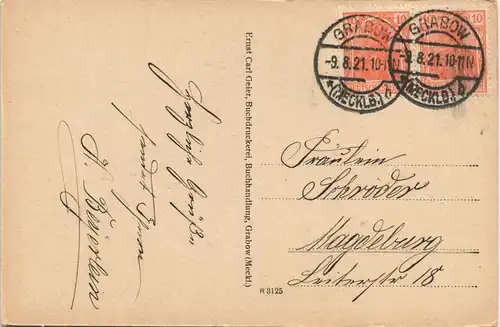 Herzliche Grüße
sendet Ihnen
H. Beyerlein
Ernst Carl Geier, Buchdruckerei, Buchhandlung, Grabow (Meckl.)
R 3125
10
10
GRABOW
-9.8.21.10-11V
*(MECKLB.) b
GRABOW
-9.8.21.10-11V
*(MECKLB.) b
Fräulein
Schröder
Magdeburg
Leiterstr 18